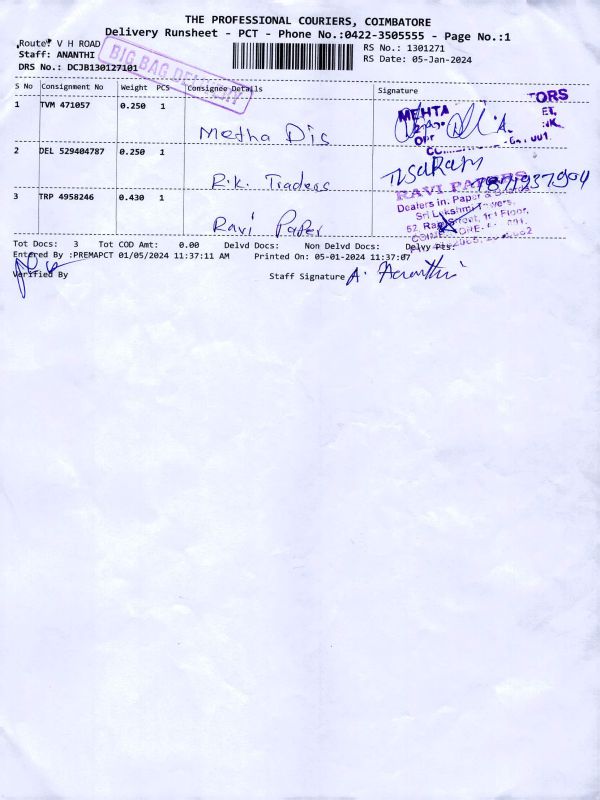 THE PROFESSIONAL COURIERS, COIMBATORE
Delivery Runsheet - PCT - Phone No.:0422-3505555 - Page No.:1
Route: V H ROAD
RS No.: 1301271
Staff: ANANTHI
RS Date: 05-Jan-2024
DRS No.: DCJB130127101
BIG BAG DELIVERY
S No Consignment No Weight PCS Consignee Details Signature
1 TVM 471057 0.250 1
Metha Dis
MEHTA TORS
2 DEL 529404787 0.250 1
R.K. Traders
3 TRP 4958246 0.430 1
Ravi Paper
RAVI PAPERS
Dealers in. Paper &
Sri Lakshmi Towers,
Tot Docs: 3 Tot COD Amt: 0.00 Delvd Docs: Non Delvd Docs: Delvy Pts:
Entered By :PREMAPCT 01/05/2024 11:37:11 AM Printed On: 05-01-2024 11:37:07
Verified By Staff Signature A. Ananthi